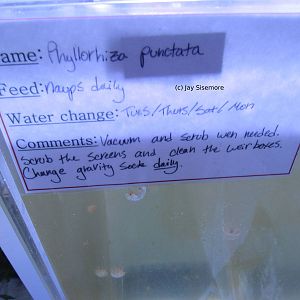 (c) Jay Sisemore
ame: Phyllorhiza punctata
Feed: Naups daily
Water change: Tues/Thurs/Sat/Mon
Comments: Vacuum and scrub wen needed.
Scrub the screens and clean the weir boxes.
Change gravity socks daily.